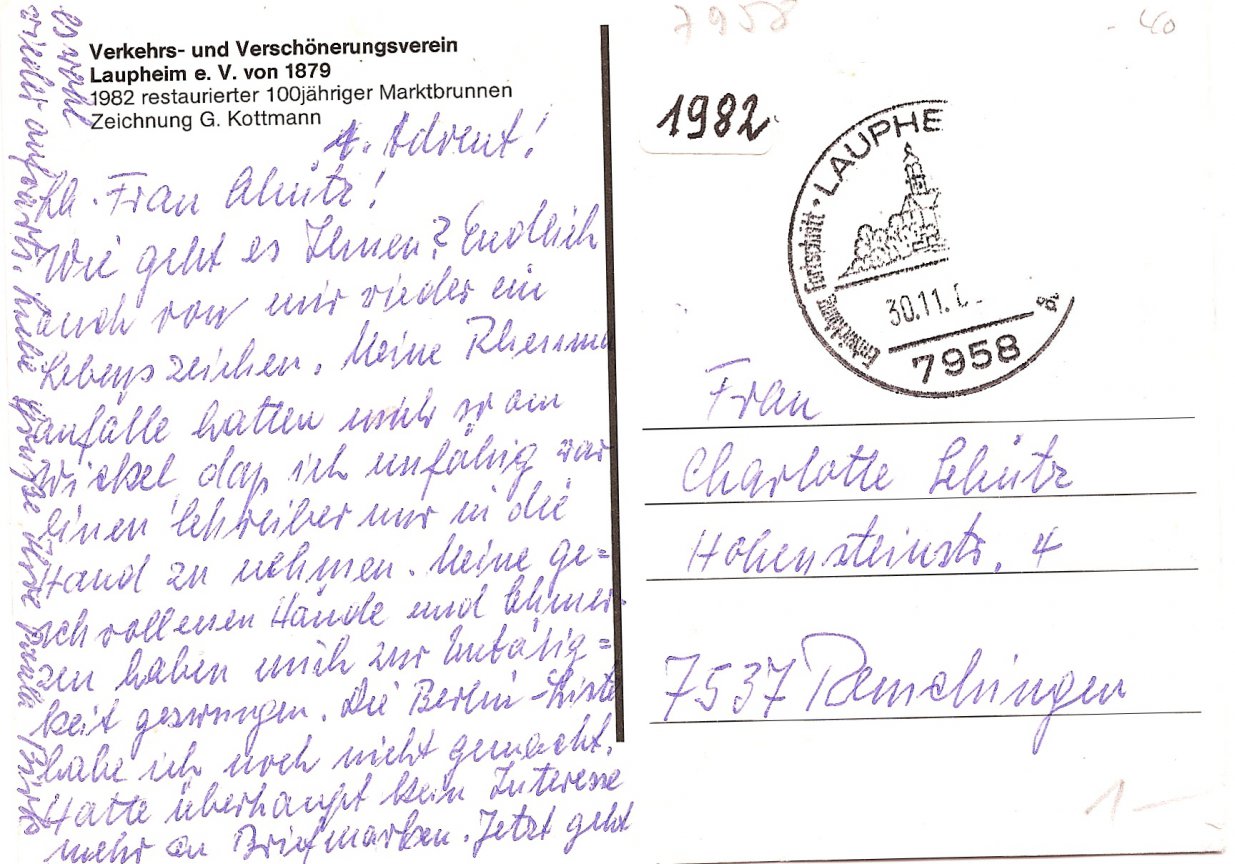 Verkehrs- und Verschönerungsverein
Laupheim e. V. von 1879
1982 restaurierter 100jähriger Marktbrunnen
Zeichnung G. Kottmann
1. Advent!
Lb. Frau Schütz!
Wie geht es Ihnen? Endlich
auch von mir wieder ein
Lebenszeichen. Meine Rheuma
anfälle hatten mich so am
Wickel, daß ich unfähig war
einen Schreiber nur in die
Hand zu nehmen. Meine ge=
schwollenen Hände und Schmer-
zen haben mich zur Untätig=
keit gezwungen. Die Berlin-Liste
habe ich noch nicht gemacht.
Hatte überhaupt kein Interesse
mehr an Briefmarken. Jetzt geht
es wohl
wieder aufwärts. Liebe Grüße Ihre
7958
-40
1982
LAUPHE
Entwicklung Fortschritt
30.11.
7958
Frau
Charlotte Schütz
Hohensteinstr. 4
7537 Remchingen
1-